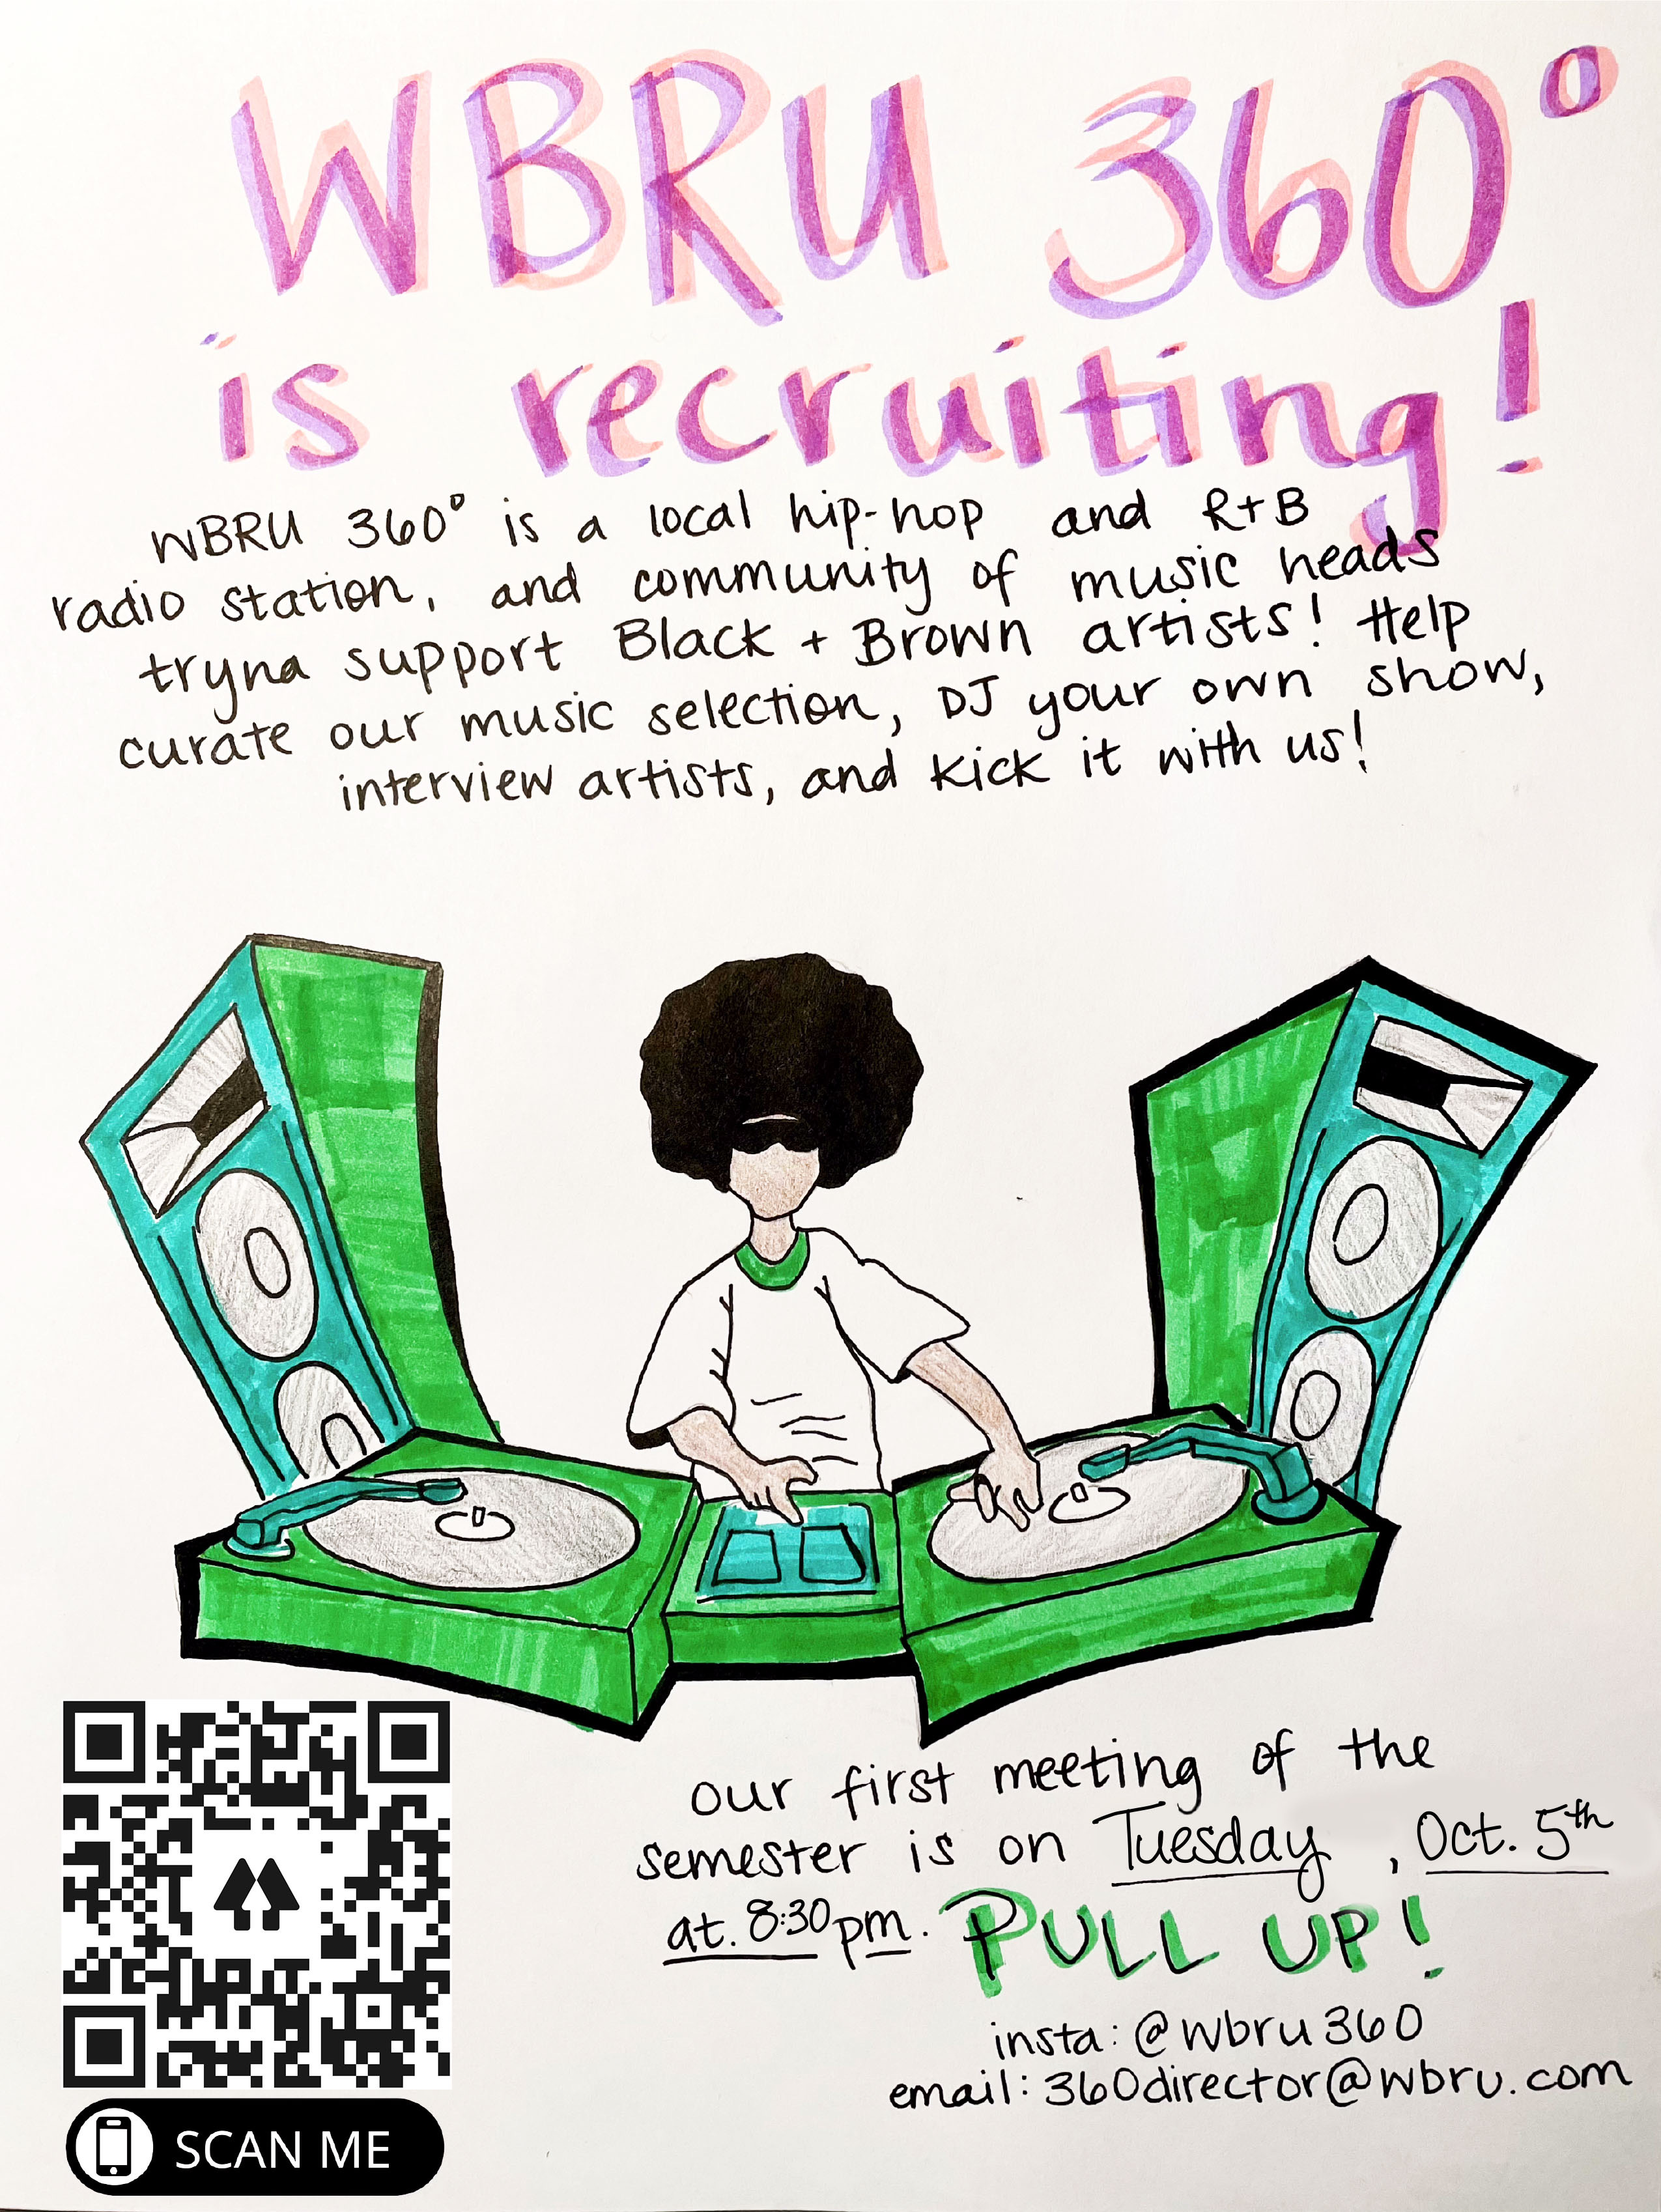 WBRU 360°
is recruiting!
WBRU 360° is a local hip-hop and R+B
radio station, and community of music heads
tryna support Black + Brown artists! Help
curate our music selection, DJ your own show,
interview artists, and kick it with us!
our first meeting of the
semester is on Tuesday, Oct. 5th
at. 8:30pm. PULL UP!
insta: @wbru360
email: 360director@wbru.com
SCAN ME